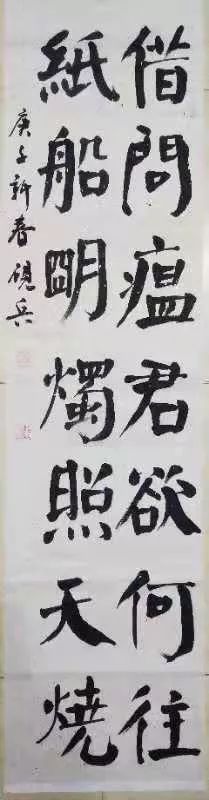 借問瘟君欲何往
紙船明燭照天燒
庚子新春硯兵